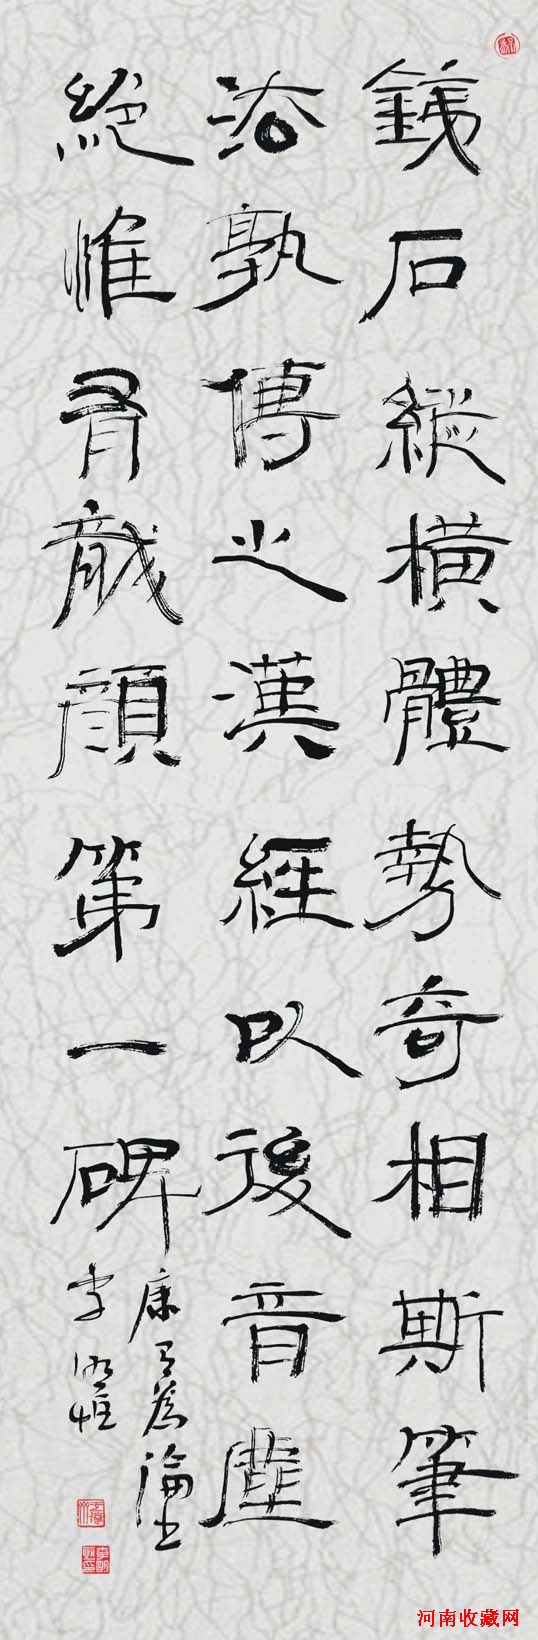 鐵石縱橫體勢奇相斯筆
法孰傳之漢經以後音塵
絕惟有龍顏第一碑
康有為論書
李
河南收藏网